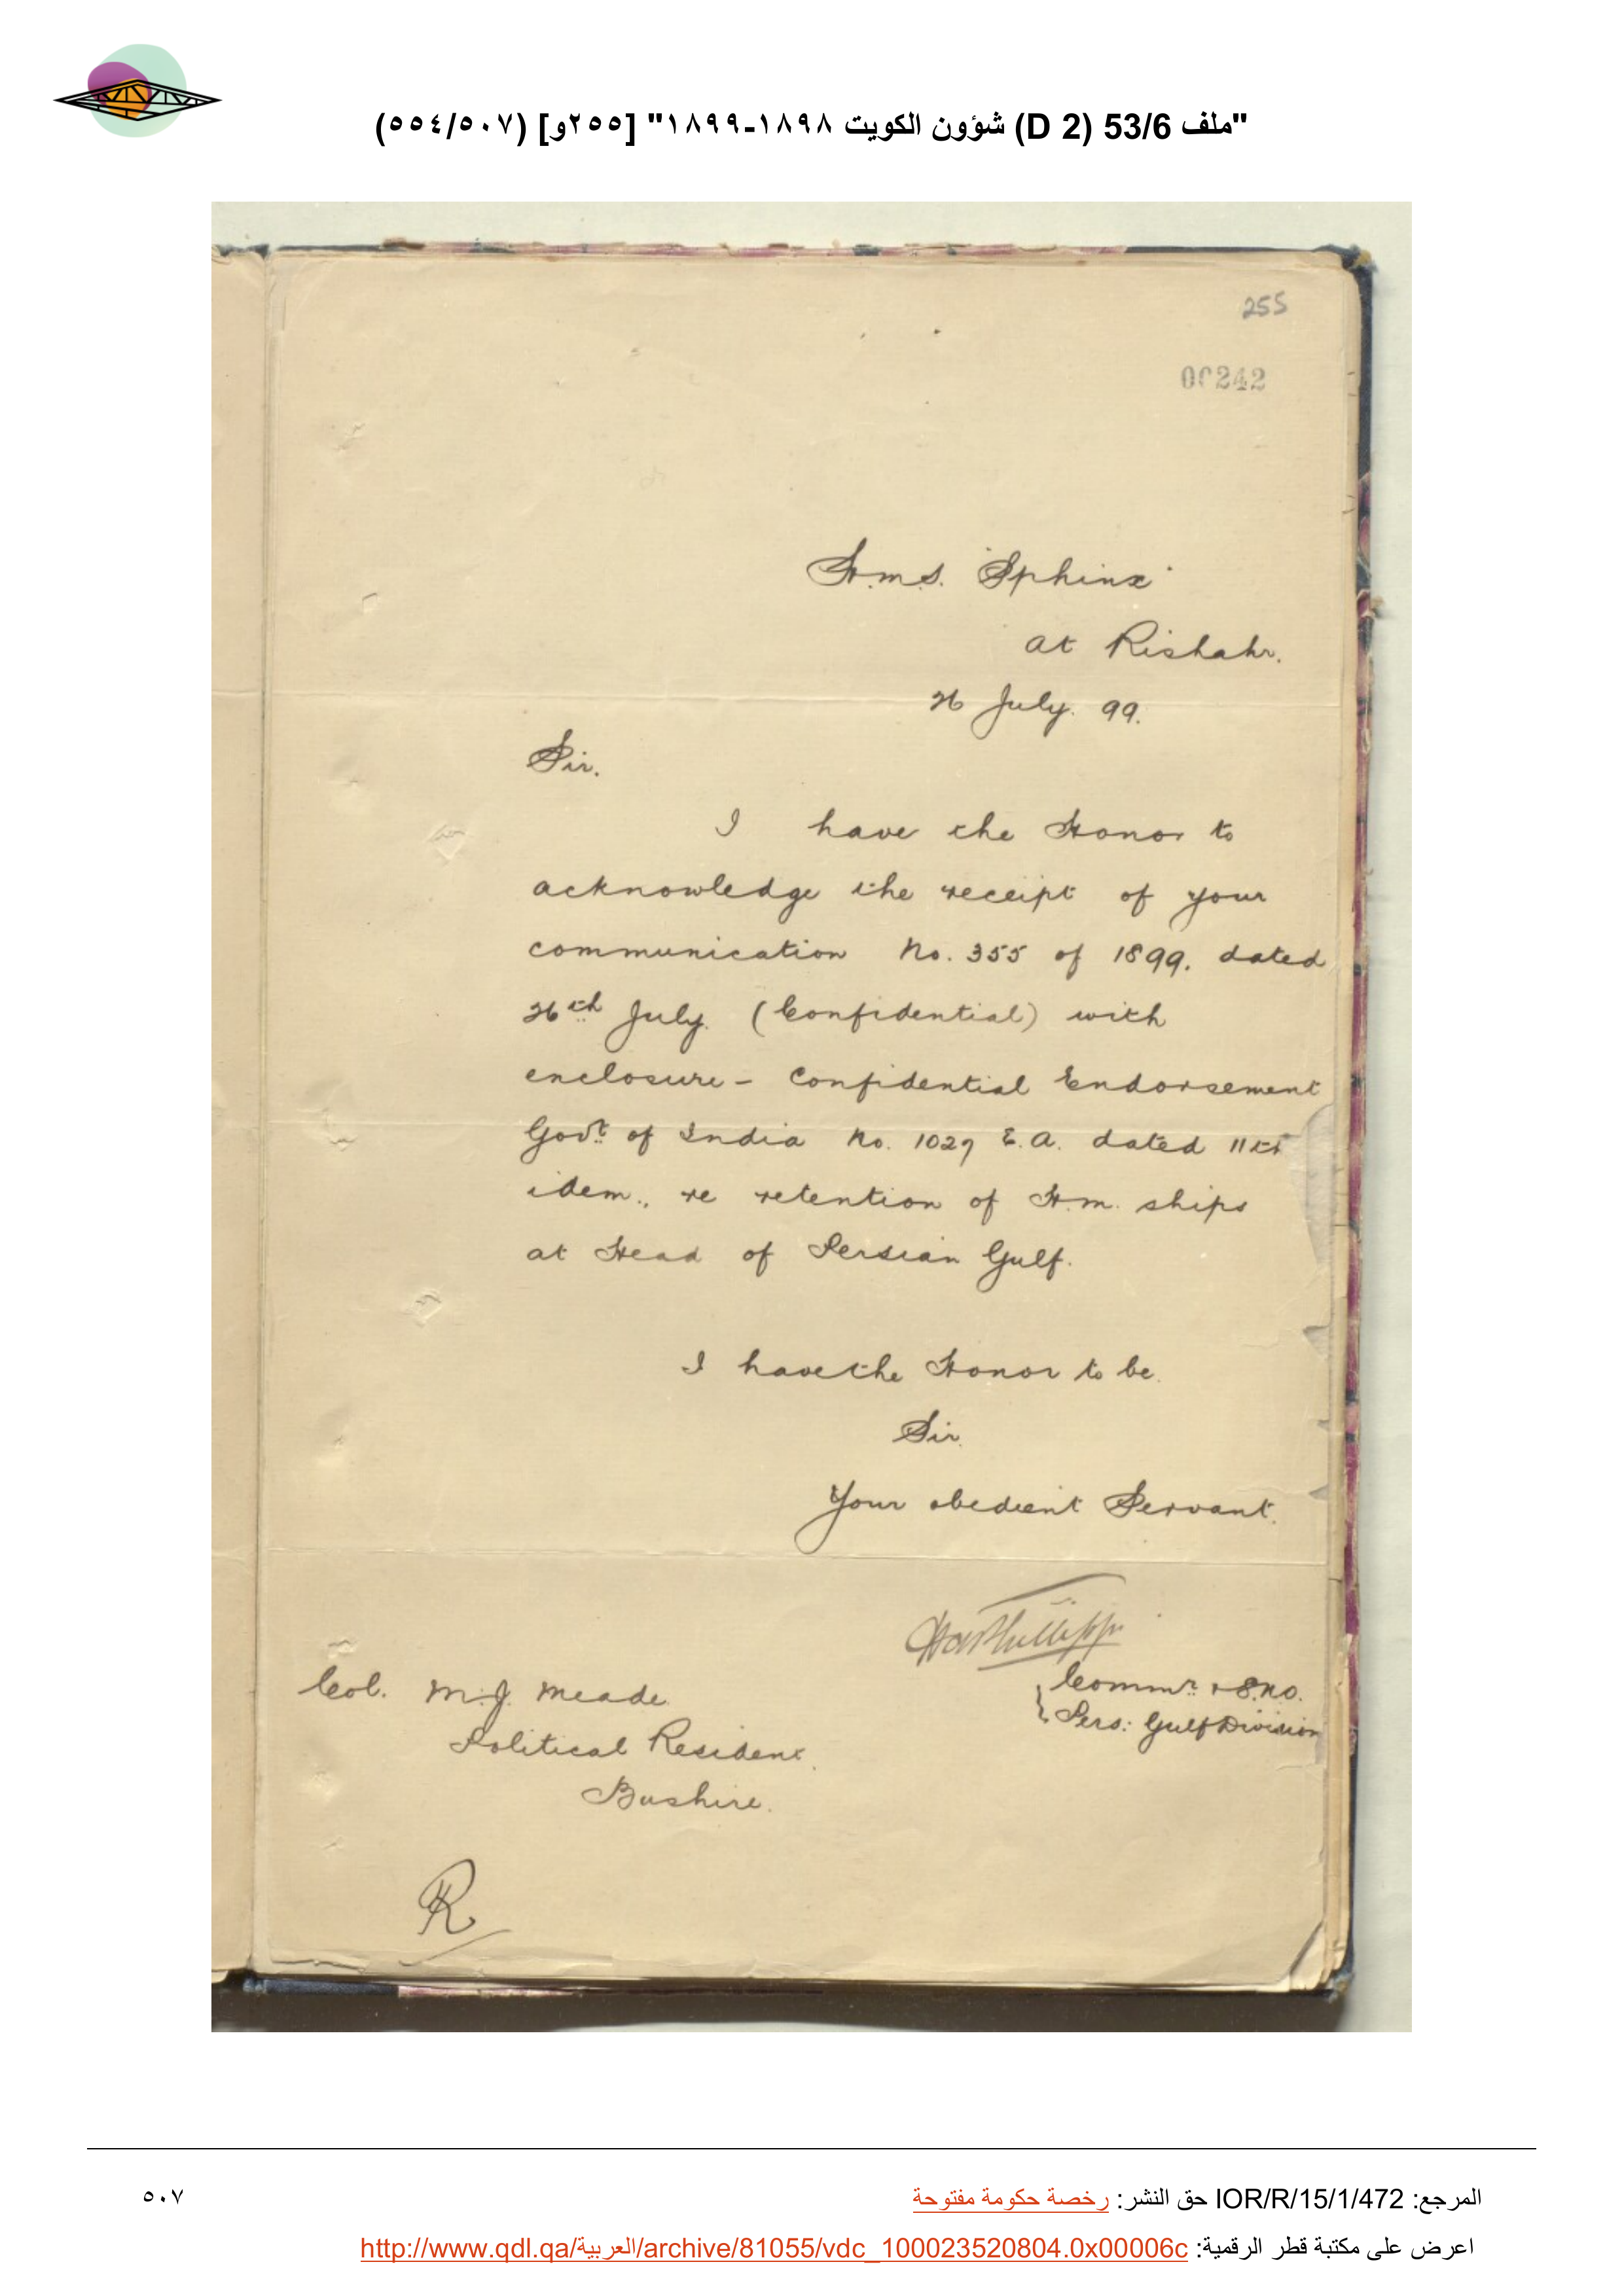 "ملف 53/6 (D 2) شؤون الكويت ١٨٩٨-١٨٩٩" [٢٥٥و] (٥٠٧/٥٥٤)
255
00242
H.M.S. "Sphinx"
at Rishahr.
26 July. 99.
Sir.
I have the Honor to
acknowledge the receipt of your
communication No. 355 of 1899. dated
26th July. (Confidential) with
enclosure - Confidential Endorsement
Govt. of India No. 1027 E.A. dated 11th
idem., re retention of H.M. ships
at Head of Persian Gulf.
I have the Honor to be.
Sir.
Your obedient Servant.
Commr. & S.N.O.
Pers: Gulf Division
Col. M.J. Meade.
Political Resident.
Bushire.
R
المرجع: IOR/R/15/1/472 حق النشر: رخصة حكومة مفتوحة
٥٠٧
اعرض على مكتبة قطر الرقمية: http://www.qdl.qa/العربية/archive/81055/vdc_100023520804.0x00006c